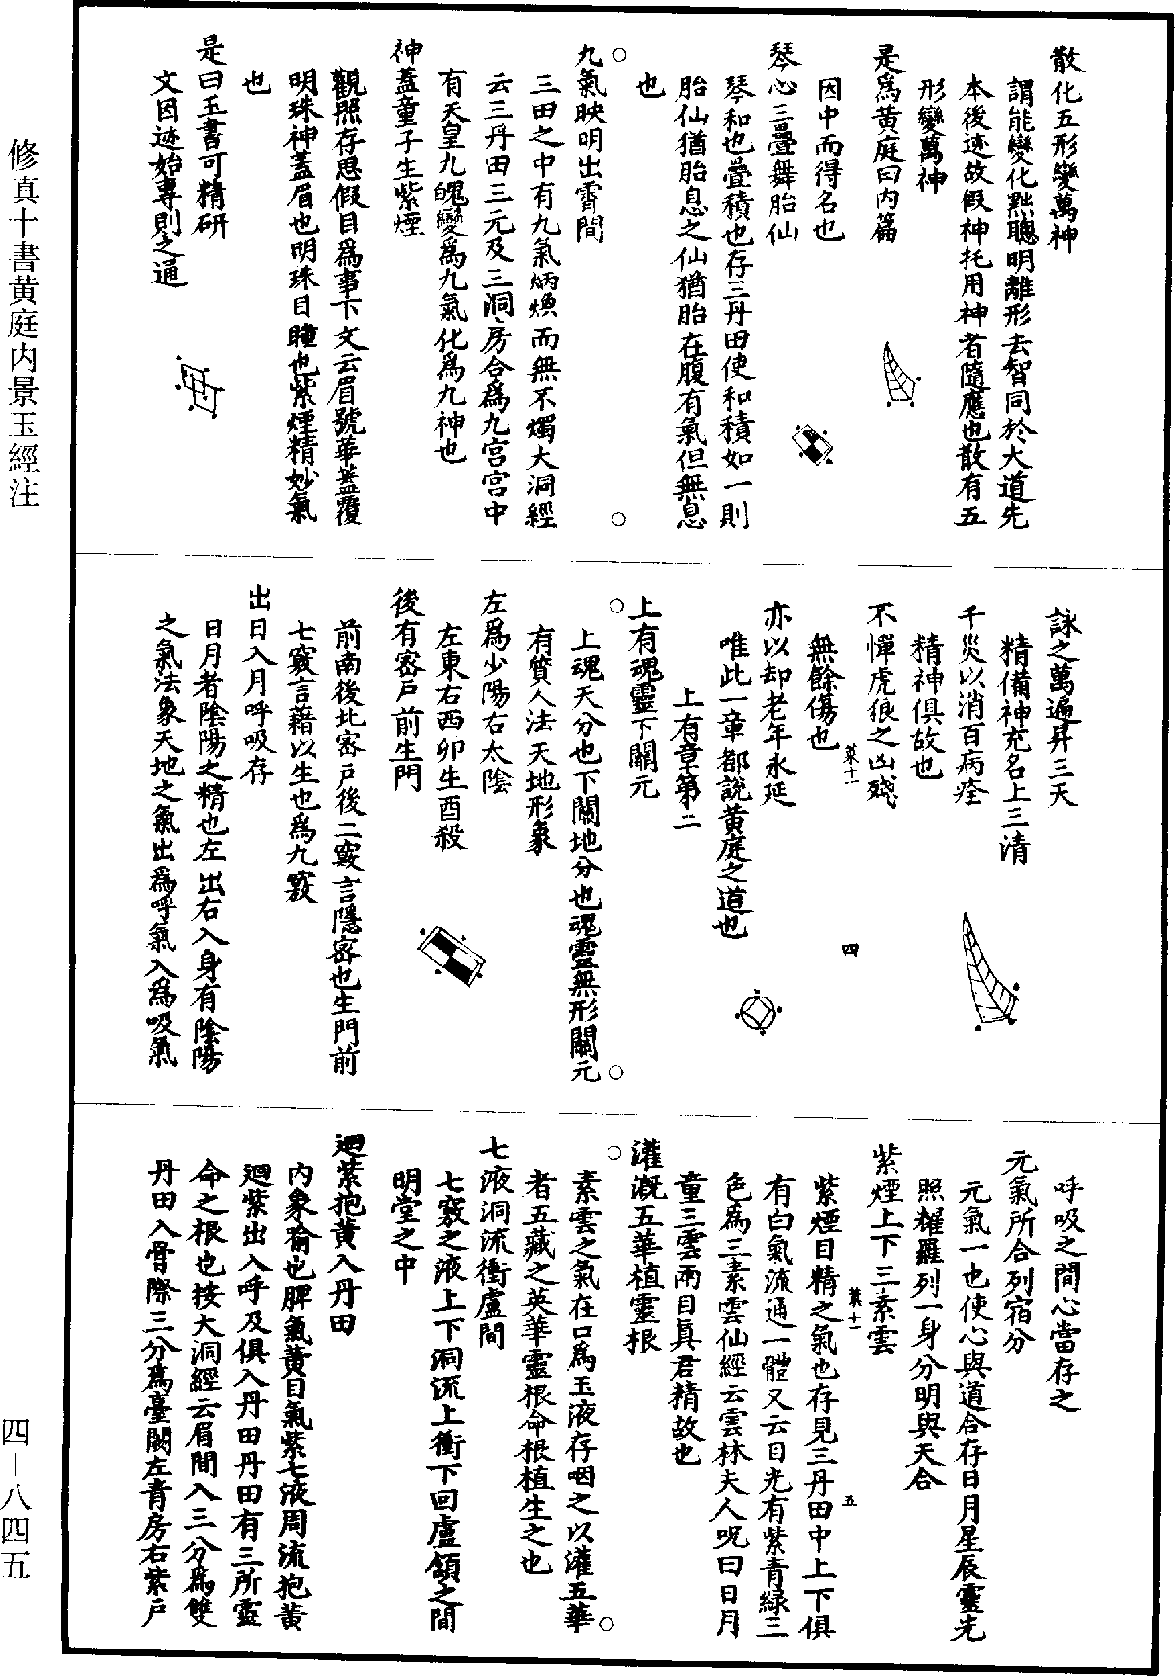 散化五形變萬神
謂能變化黜聰明離形去智同於大道先
本後迹故假神托用神者隨應也散有五
形變萬神
是為黃庭曰內篇
因中而得名也
琴心三疊舞胎仙
琴和也疊積也存三丹田使和積如一則
胎仙猶胎息之仙猶胎在腹有氣但無息
也
九氣映明出霄間
三田之中有九氣炳煥而無不燭大洞經
云三丹田三元及三洞房合為九宮宮中
有天皇九魄變為九氣化為九神也
神蓋童子生紫煙
觀照存思假目為事下文云眉號華蓋覆
明珠神蓋眉也明珠目瞳也紫煙精妙氣
也
是曰玉書可精研
文因迹始專則之通
詠之萬遍昇三天
精備神充名上三清
千災以消百病痊
精神俱故也
不憚虎狼之凶殘
無餘傷也
菜十一
四
亦以却老年永延
唯此一章都說黃庭之道也
上有章第二
上有魂靈下關元
上魂天分也下關地分也魂靈無形關元
有質人法天地形象
左為少陽右太陰
左東右西卯生酉殺
後有密戶前生門
前南後北密戶後二竅言隱密也生門前
七竅言藉以生也為九竅
出日入月呼吸存
日月者陰陽之精也左出右入身有陰陽
之氣法象天地之氣出為呼氣入為吸氣
呼吸之間心當存之
元氣所合列宿分
元氣一也使心與道合存日月星辰靈光
照耀羅列一身分明與天合
紫煙上下三素雲
紫煙目精之氣也存見三丹田中上下俱
菜十一
五
有白氣流通一體又云目光有紫青綠三
色為三素雲仙經云雲林夫人呪曰日月
童三雲兩目真君精故也
灌溉五華植靈根
素雲之氣在口為玉液存咽之以灌五華
者五藏之英華靈根命根植生之也
七液洞流衝盧間
七竅之液上下洞流上衝下回盧頷之間
明堂之中
迴紫抱黃入丹田
內象喻也脾氣黃目氣紫七液周流抱黃
迴紫出入呼及俱入丹田丹田有三所靈
命之根也按大洞經云眉間入三分為雙
丹田入骨際三分為臺闕左青房右紫戶
修真十書黃庭內景玉經注
四－八四五